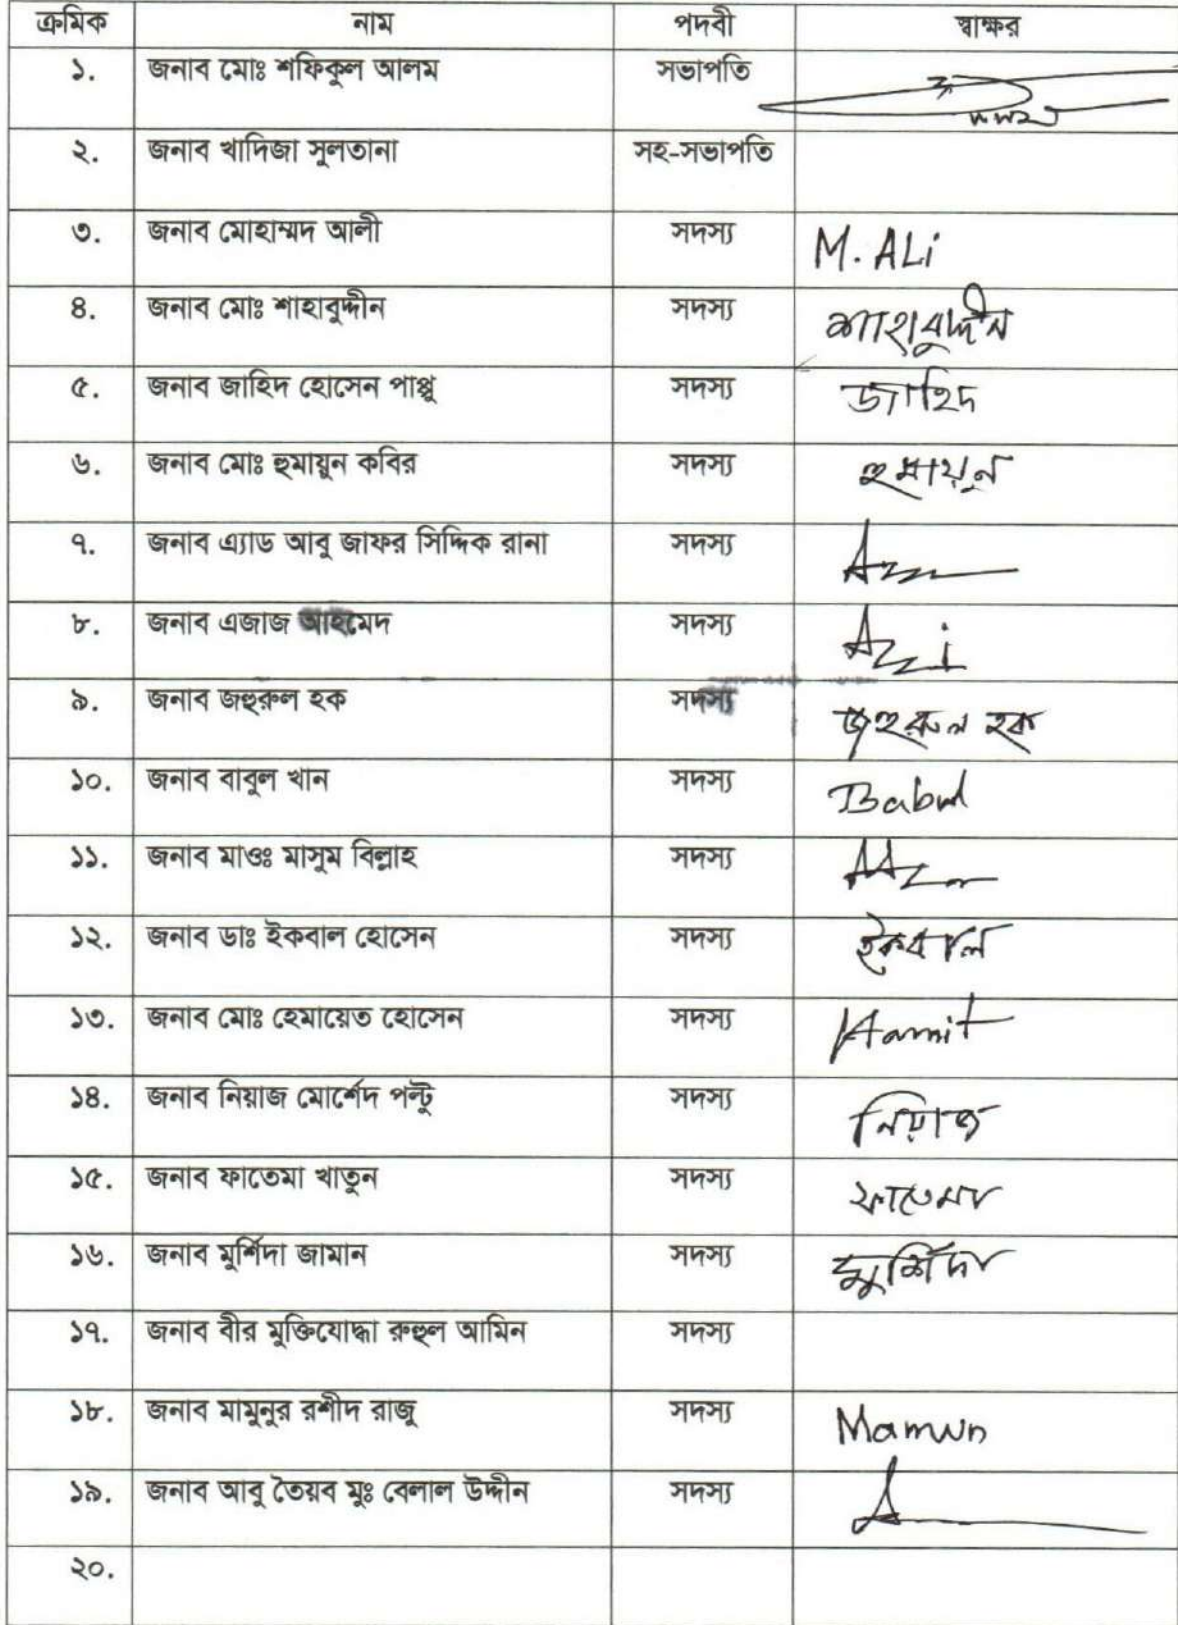 ক্রমিক নাম পদবী স্বাক্ষর
১. জনাব মোঃ শফিকুল আলম সভাপতি
২. জনাব খাদিজা সুলতানা সহ-সভাপতি
৩. জনাব মোহাম্মদ আলী সদস্য M. ALi
৪. জনাব মোঃ শাহাবুদ্দীন সদস্য শাহাবুদ্দীন
৫. জনাব জাহিদ হোসেন পাপ্পু সদস্য জাহিদ
৬. জনাব মোঃ হুমায়ুন কবির সদস্য হুমায়ুন
৭. জনাব এ্যাড আবু জাফর সিদ্দিক রানা সদস্য
৮. জনাব এজাজ আহমেদ সদস্য
৯. জনাব জহুরুল হক সদস্য জহুরুল হক
১০. জনাব বাবুল খান সদস্য Babul
১১. জনাব মাওঃ মাসুম বিল্লাহ সদস্য
১২. জনাব ডাঃ ইকবাল হোসেন সদস্য ইকবাল
১৩. জনাব মোঃ হেমায়েত হোসেন সদস্য
১৪. জনাব নিয়াজ মোর্শেদ পল্টু সদস্য নিয়াজ
১৫. জনাব ফাতেমা খাতুন সদস্য ফাতেমা
১৬. জনাব মুর্শিদা জামান সদস্য মুর্শিদা
১৭. জনাব বীর মুক্তিযোদ্ধা রুহুল আমিন সদস্য
১৮. জনাব মামুনুর রশীদ রাজু সদস্য Mamun
১৯. জনাব আবু তৈয়ব মুঃ বেলাল উদ্দীন সদস্য
২০.